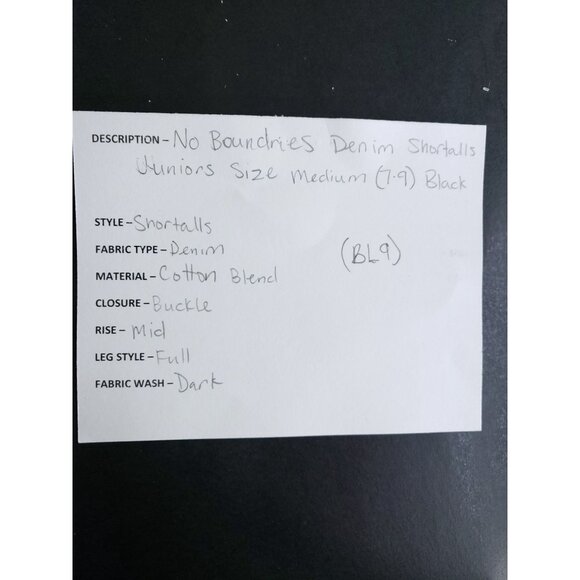 DESCRIPTION – No Boundries Denim Shortalls
Juniors Size Medium (7-9) Black
STYLE – Shortalls
FABRIC TYPE – Denim
(BL9)
MATERIAL – Cotton Blend
CLOSURE – Buckle
RISE – Mid
LEG STYLE – Full
FABRIC WASH – Dark